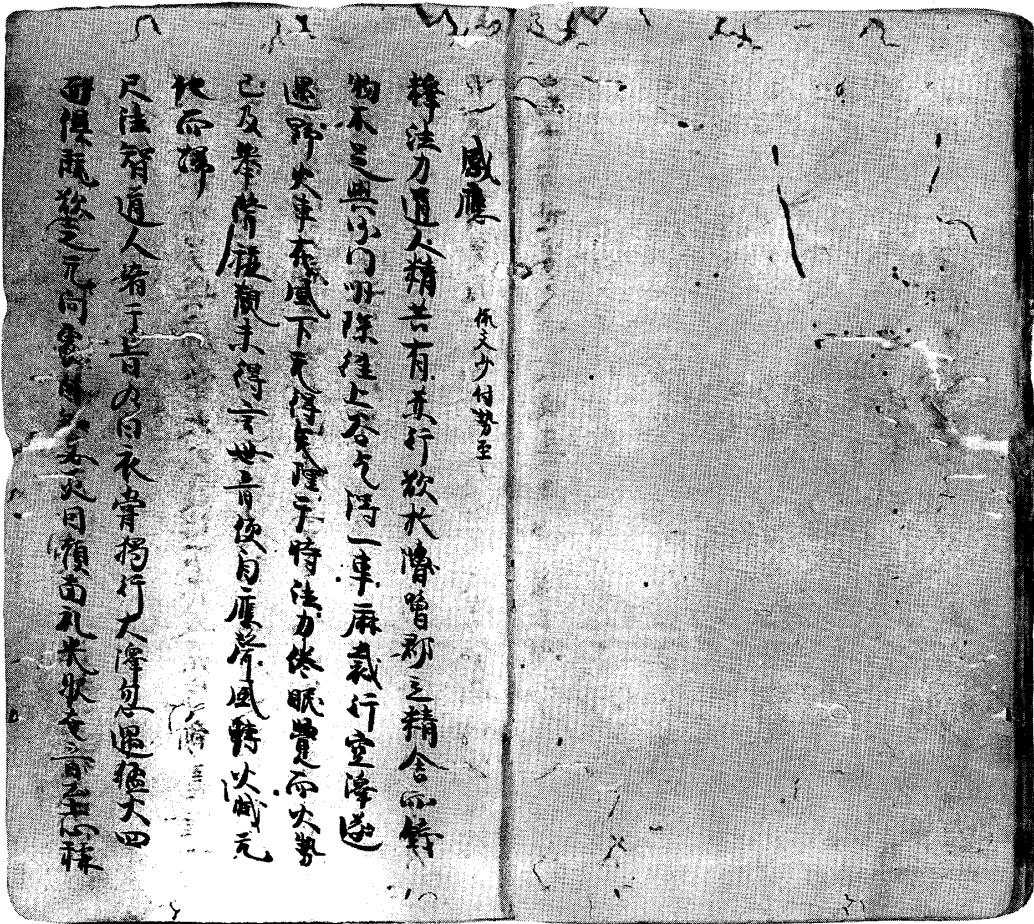 感應
文少付勢至
釋法力道人精苦有其行欲於魯郡立精舍而錢
物不足與沙門明琛往上谷乞得一車麻載行空澤遂
遇野火車在風下无得免理于時法力倦眠覺而火勢
已及舉聲稱觀未得言世音便自應聲風轉火滅无
他而歸
尺法智道人者于昔乃白衣嘗獨行大澤忽遇猛火四
面俱 欲 无向 因頭面礼光 世音至心稱